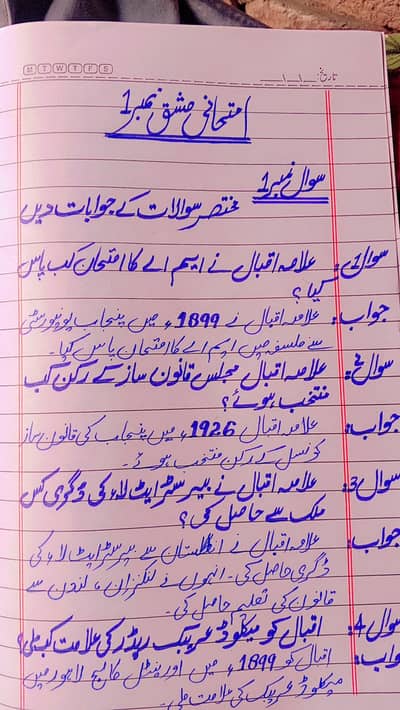 M T W T F S
تاریخ: __/__/__
امتحانی مشق نمبر 1
سوال نمبر 1
مختصر سوالات کے جوابات دیں
سوال 1: علامہ اقبال نے ایم اے کا امتحان کب پاس
کیا؟
جواب: علامہ اقبال نے 1899ء میں پنجاب یونیورسٹی
سے فلسفہ میں ایم اے کا امتحان پاس کیا۔
سوال 2: علامہ اقبال مجلس قانون ساز کے رکن کب
منتخب ہوئے؟
جواب: علامہ اقبال 1926ء میں پنجاب کی قانون ساز
کونسل کے رکن منتخب ہوئے۔
سوال 3: علامہ اقبال نے بیرسٹر ایٹ لاء کی ڈگری کس
ملک سے حاصل کی؟
جواب: علامہ اقبال نے انگلستان سے بیرسٹر ایٹ لاء کی
ڈگری حاصل کی۔ انہوں نے لنکنزان، لندن سے
قانون کی تعلیم حاصل کی۔
سوال 4: اقبال کو میکلوڈ عریبک ریڈر کی ملامت کب ملی؟
جواب: اقبال کو 1899ء میں اورینٹل کالج لاہور میں
میکلوڈ عریبک کی ملامت ملی۔